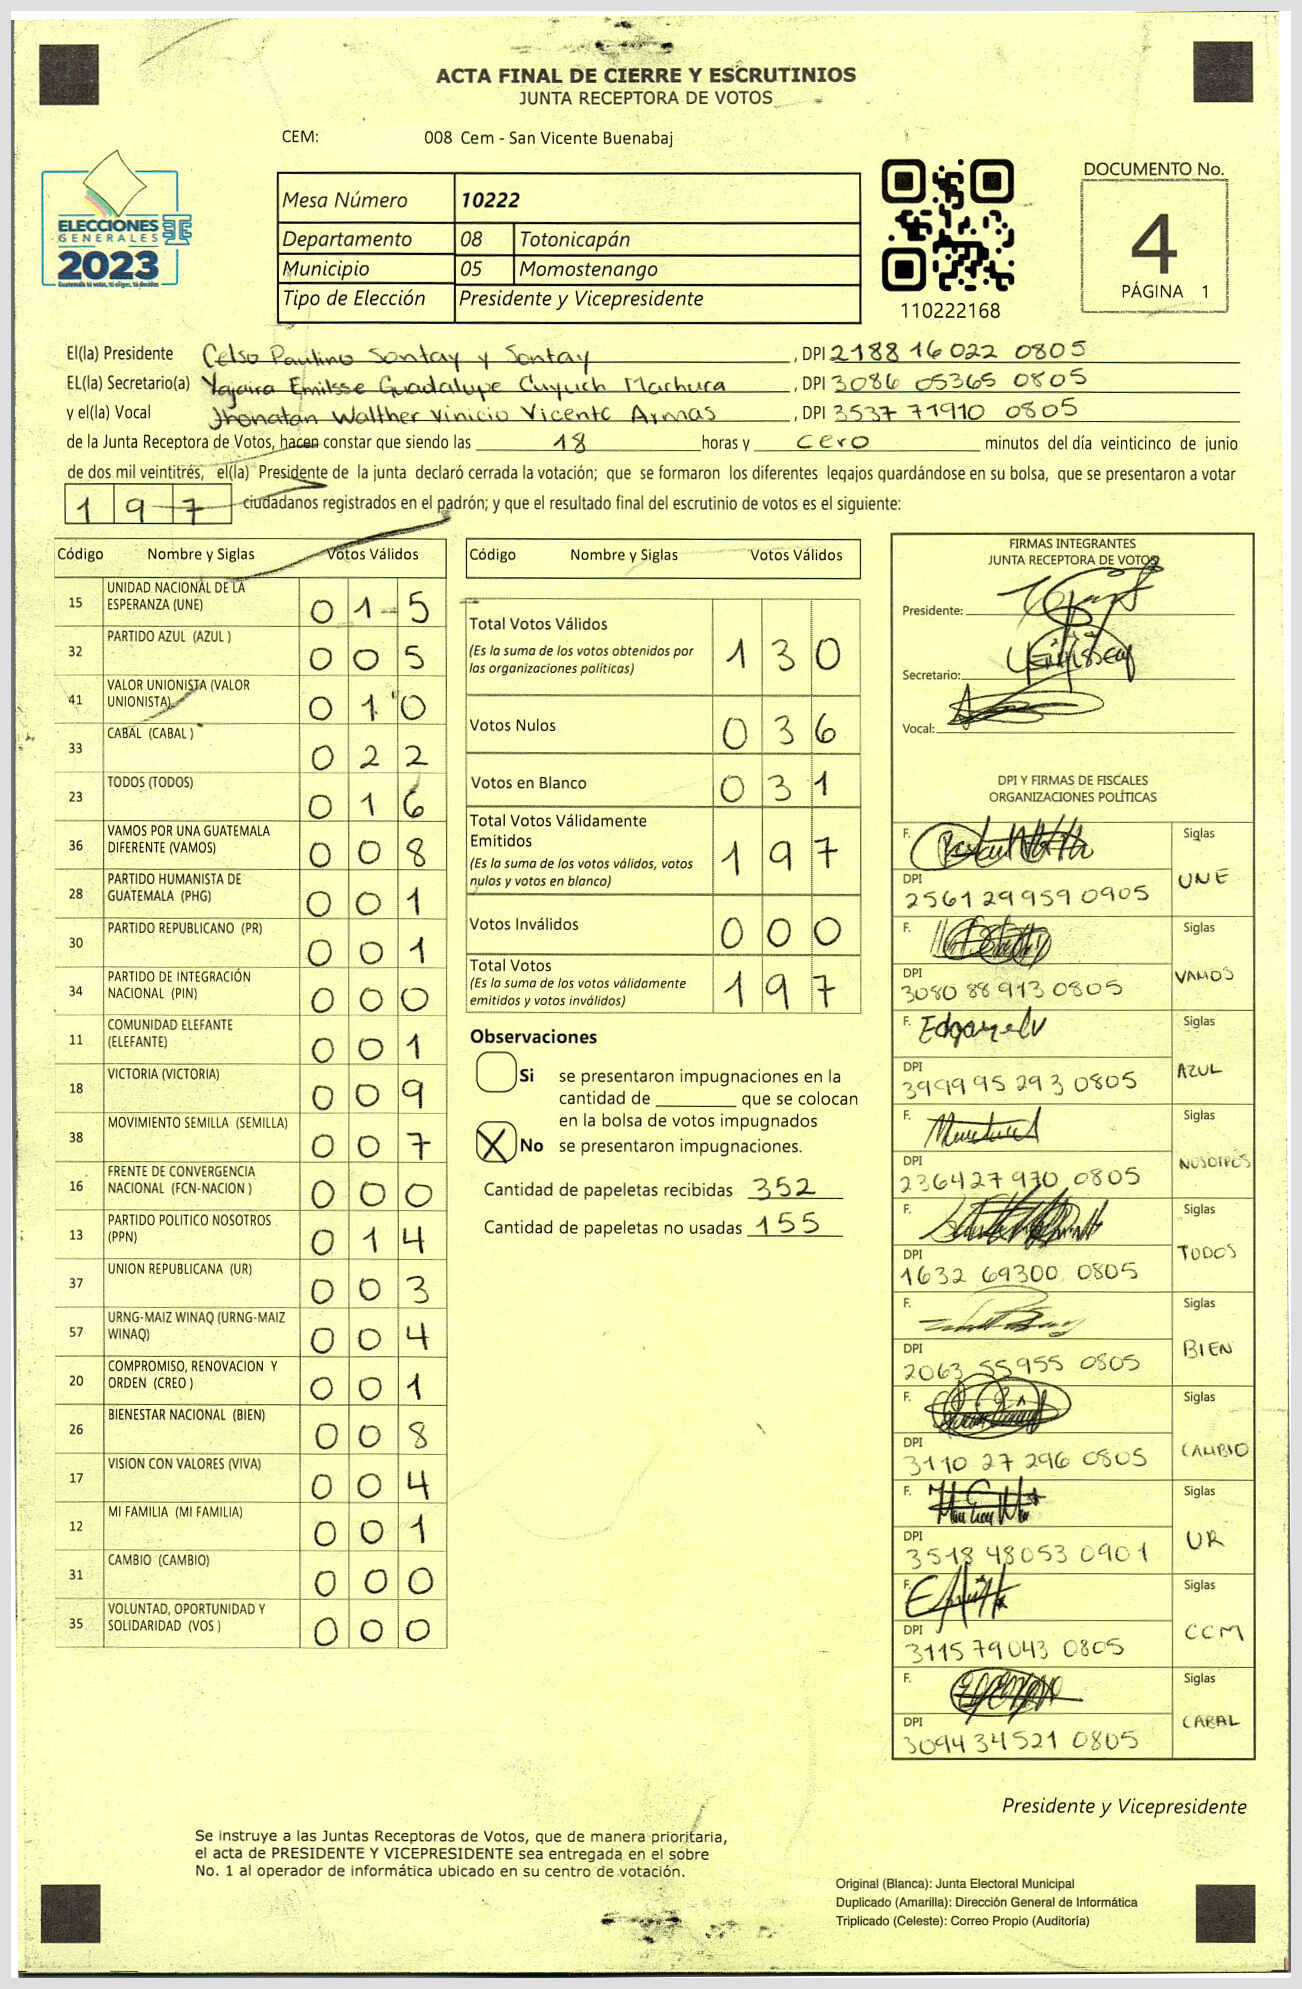 ACTA FINAL DE CIERRE Y ESCRUTINIOS
JUNTA RECEPTORA DE VOTOS
CEM: 008 Cem - San Vicente Buenabaj
ELECCIONES
GENERALES
2023
Mesa Número 10222
Departamento 08 Totonicapán
Municipio 05 Momostenango
Tipo de Elección Presidente y Vicepresidente
110222168
DOCUMENTO No.
4
PÁGINA 1
El(la) Presidente Celso Paulino Sontay y Sontay, DPI 2188 16022 0805
EL(la) Secretario(a) Yajaira Emilsse Guadalupe Cuyuch Machuca, DPI 3086 05365 0805
y el(la) Vocal Jhonatan Walther Vinicio Vicente Armas, DPI 3537 71910 0805
de la Junta Receptora de Votos, hacen constar que siendo las 18 horas y cero minutos del día veinticinco de junio
de dos mil veintitrés, el(la) Presidente de la junta declaró cerrada la votación; que se formaron los diferentes legajos guardándose en su bolsa, que se presentaron a votar
197 ciudadanos registrados en el padrón; y que el resultado final del escrutinio de votos es el siguiente:
Código Nombre y Siglas Votos Válidos
15 UNIDAD NACIONAL DE LA ESPERANZA (UNE) 015
32 PARTIDO AZUL (AZUL ) 005
41 VALOR UNIONISTA (VALOR UNIONISTA) 010
33 CABAL (CABAL ) 022
23 TODOS (TODOS) 016
36 VAMOS POR UNA GUATEMALA DIFERENTE (VAMOS) 008
28 PARTIDO HUMANISTA DE GUATEMALA (PHG) 001
30 PARTIDO REPUBLICANO (PR) 001
34 PARTIDO DE INTEGRACIÓN NACIONAL (PIN) 000
11 COMUNIDAD ELEFANTE (ELEFANTE) 001
18 VICTORIA (VICTORIA) 009
38 MOVIMIENTO SEMILLA (SEMILLA) 007
16 FRENTE DE CONVERGENCIA NACIONAL (FCN-NACION ) 000
13 PARTIDO POLITICO NOSOTROS (PPN) 014
37 UNION REPUBLICANA (UR) 003
57 URNG-MAIZ WINAQ (URNG-MAIZ WINAQ) 004
20 COMPROMISO, RENOVACION Y ORDEN (CREO ) 001
26 BIENESTAR NACIONAL (BIEN) 008
17 VISION CON VALORES (VIVA) 004
12 MI FAMILIA (MI FAMILIA) 001
31 CAMBIO (CAMBIO) 000
35 VOLUNTAD, OPORTUNIDAD Y SOLIDARIDAD (VOS ) 000
Código Nombre y Siglas Votos Válidos
Total Votos Válidos 130
(Es la suma de los votos obtenidos por
las organizaciones políticas)
Votos Nulos 036
Votos en Blanco 031
Total Votos Válidamente
Emitidos 197
(Es la suma de los votos válidos, votos
nulos y votos en blanco)
Votos Inválidos 000
Total Votos 197
(Es la suma de los votos válidamente
emitidos y votos inválidos)
Observaciones
Si se presentaron impugnaciones en la
cantidad de ________ que se colocan
en la bolsa de votos impugnados
X No se presentaron impugnaciones.
Cantidad de papeletas recibidas 352
Cantidad de papeletas no usadas 155
FIRMAS INTEGRANTES
JUNTA RECEPTORA DE VOTOS
Presidente:
Secretario:
Vocal:
DPI Y FIRMAS DE FISCALES
ORGANIZACIONES POLÍTICAS
F. Siglas
DPI UNE
2561 29959 0905
F. Siglas
DPI VAMOS
3080 88913 0805
F. Siglas
DPI AZUL
3999 95293 0805
F. Siglas
DPI NOSOTROS
2364 27970 0805
F. Siglas
DPI TODOS
1632 69300 0805
F. Siglas
DPI BIEN
2063 55955 0805
F. Siglas
DPI CAMBIO
3110 27296 0805
F. Siglas
DPI UR
3518 48053 0901
F. Siglas
DPI CCM
3115 79043 0805
F. Siglas
DPI CABAL
3094 34521 0805
Presidente y Vicepresidente
Se instruye a las Juntas Receptoras de Votos, que de manera prioritaria,
el acta de PRESIDENTE Y VICEPRESIDENTE sea entregada en el sobre
No. 1 al operador de informática ubicado en su centro de votación.
Original (Blanca): Junta Electoral Municipal
Duplicado (Amarilla): Dirección General de Informática
Triplicado (Celeste): Correo Propio (Auditoría)